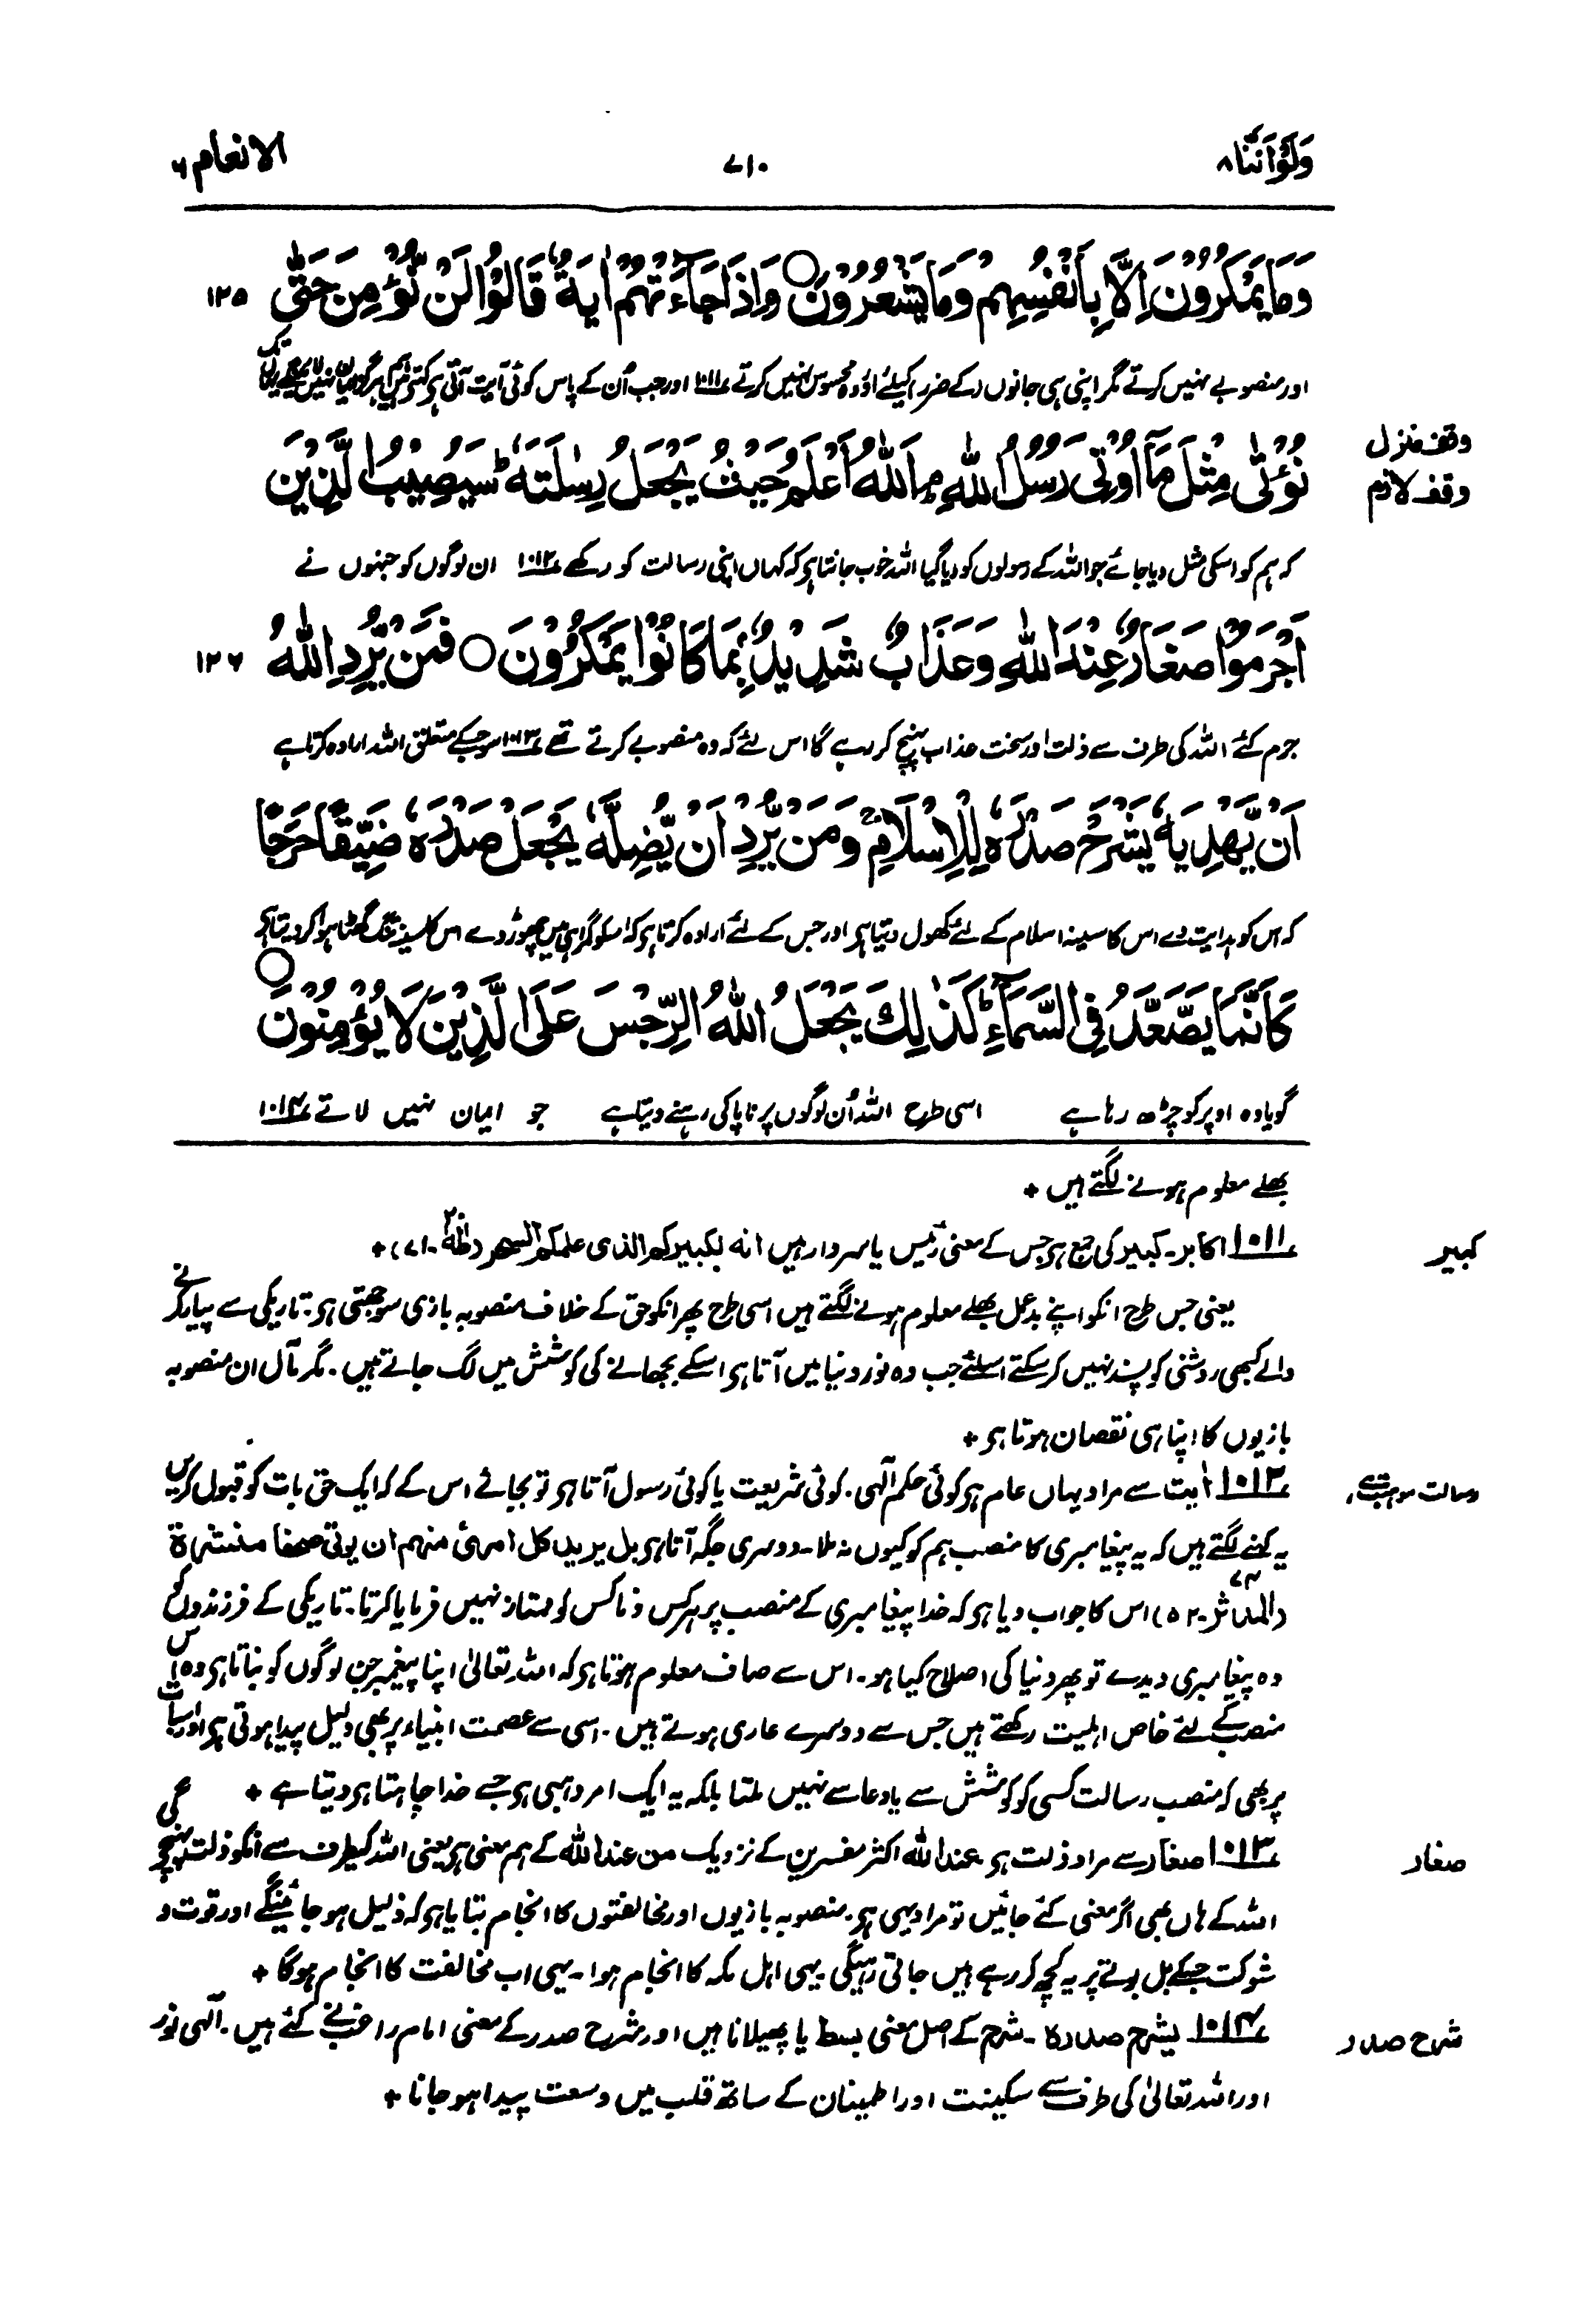 وَلَوْ اَنَّنَا ۸
۷۱۰
الانعام ۶
وَمَا يَمْكُرُوْنَ اِلَّا بِاَنْفُسِهِمْ وَمَا يَشْعُرُوْنَ ○ وَاِذَا جَآءَتْهُمْ اٰيَةٌ قَالُوْا لَنْ نُّؤْمِنَ حَتّٰى ۱۲۵
اور منصوبے نہیں کرتے مگر اپنی ہی جانوں (کے ضرر) کیلئے اور وہ محسوس نہیں کرتے ۱۰۱۱ اور جب اُن کے پاس کوئی آیت آتی ہے کہتے ہیں ہم ہرگز ایمان نہیں لائینگے یہاں تک
نُؤْتٰى مِثْلَ مَآ اُوْتِىَ رُسُلُ اللّٰهِ ۘ اَللّٰهُ اَعْلَمُ حَيْثُ يَجْعَلُ رِسٰلَتَهٗ ؕ سَيُصِيْبُ الَّذِيْنَ
وقف منزل
وقف لازم
کہ ہم کو اسکی مثل دیا جائے جو اللہ کے رسولوں کو دیا گیا اللہ خوب جانتا ہے کہ کہاں اپنی رسالت کو رکھے ۱۰۱۲ ان لوگوں کو جنہوں نے
اَجْرَمُوْا صَغَارٌ عِنْدَ اللّٰهِ وَعَذَابٌ شَدِيْدٌ بِمَا كَانُوْا يَمْكُرُوْنَ ○ فَمَنْ يُّرِدِ اللّٰهُ ۱۲۶
جرم کئے اللہ کی طرف سے ذلت اور سخت عذاب پہنچ کر رہے گا اس لئے کہ وہ منصوبے کرتے تھے ۱۰۱۳ سو جسکے متعلق اللہ ارادہ کرتا ہے
اَنْ يَّهْدِيَهٗ يَشْرَحْ صَدْرَهٗ لِلْاِسْلَامِ ۚ وَمَنْ يُّرِدْ اَنْ يُّضِلَّهٗ يَجْعَلْ صَدْرَهٗ ضَيِّقًا حَرَجًا
کہ اس کو ہدایت دے اس کا سینہ اسلام کے لئے کھول دیتا ہے اور جس کے لئے ارادہ کرتا ہے کہ اسکو گمراہی میں چھوڑ دے اس کا سینہ تنگ گھٹا ہوا کر دیتا ہے
كَاَنَّمَا يَصَّعَّدُ فِى السَّمَآءِ ؕ كَذٰلِكَ يَجْعَلُ اللّٰهُ الرِّجْسَ عَلَى الَّذِيْنَ لَا يُؤْمِنُوْنَ ○
گویا وہ اوپر کو چڑھ رہا ہے اسی طرح اللہ اُن لوگوں پر ناپاکی رہنے دیتا ہے جو ایمان نہیں لاتے ۱۰۱۴
بھلے معلوم ہونے لگتے ہیں +
کبیر
۱۰۱۱ اکابر۔ کبیر کی جمع ہے جس کے معنی رئیس یا سردار ہیں انه لکبیرکم الذی علمکم السحر (طٰهٰ ۲۰۔ ۷۱) +
یعنی جس طرح انکو اپنے بد عمل بھلے معلوم ہونے لگتے ہیں اسی طرح پھر انکو حق کے خلاف منصوبہ بازی سوجھتی ہے۔ تاریکی سے پیار کرنے
والے کبھی روشنی کو پسند نہیں کر سکتے اسلئے جب وہ نور دنیا میں آتا ہے اسکے بجھانے کی کوشش میں لگ جاتے ہیں۔ مگر مآل ان منصوبہ
بازیوں کا اپنا ہی نقصان ہوتا ہے +
رسالت موہبت ہے
۱۰۱۲ اٰیت سے مراد یہاں عام ہے کوئی حکم الٰہی۔ کوئی شریعت یا کوئی رسول آتا ہے تو بجائے اس کے کہ ایک حق بات کو قبول کریں
یہ کہنے لگتے ہیں کہ یہ پیغامبری کا منصب ہم کو کیوں نہ ملا۔ دوسری جگہ آتا ہے بل یرید کل امرئ منہم ان یوتی صحفا منشرة
(المدثر ۷۴۔ ۵۲) اس کا جواب دیا ہے کہ خدا پیغامبری کے منصب پر ہر کس و ناکس کو ممتاز نہیں فرمایا کرتا۔ تاریکی کے فرزندوں کو
وہ پیغامبری دیدے تو پھر دنیا کی اصلاح کیا ہو۔ اس سے صاف معلوم ہوتا ہے کہ اللہ تعالیٰ اپنا پیغمبر جن لوگوں کو بناتا ہے وہ اس
منصب کے لئے خاص اہلیت رکھتے ہیں جس سے دوسرے عاری ہوتے ہیں۔ اسی سے عصمت انبیاء پر بھی دلیل پیدا ہوتی ہے اور اس بات
پر بھی کہ منصب رسالت کسی کو کوشش سے یا دعا سے نہیں ملتا بلکہ یہ ایک امر وہبی ہے جسے خدا چاہتا ہے دیتا ہے +
صغار
۱۰۱۳ صغار سے مراد ذلت ہے عند اللہ اکثر مفسرین کے نزدیک من عند اللہ کے ہم معنی ہے یعنی اللہ کیطرف سے انکو ذلت پہنچے گی
اللہ کے ہاں بھی اگر معنی کئے جائیں تو مراد یہی ہے۔ منصوبہ بازیوں اور مخالفتوں کا انجام بتایا ہے کہ ذلیل ہو جائینگے اور قوت و
شوکت جسکے بل بوتے پر یہ کچھ کر رہے ہیں جاتی رہیگی۔ یہی اہل مکہ کا انجام ہوا۔ یہی اب مخالفت کا انجام ہوگا +
شرح صدر
۱۰۱۴ یشرح صدرہ۔ شرح کے اصل معنی بسط یا پھیلانا ہیں اور شرح صدر کے معنی امام راغب نے کئے ہیں۔ الٰہی نور
اور اللہ تعالیٰ کی طرف سے سکینت اور اطمینان کے ساتھ قلب میں وسعت پیدا ہو جانا +